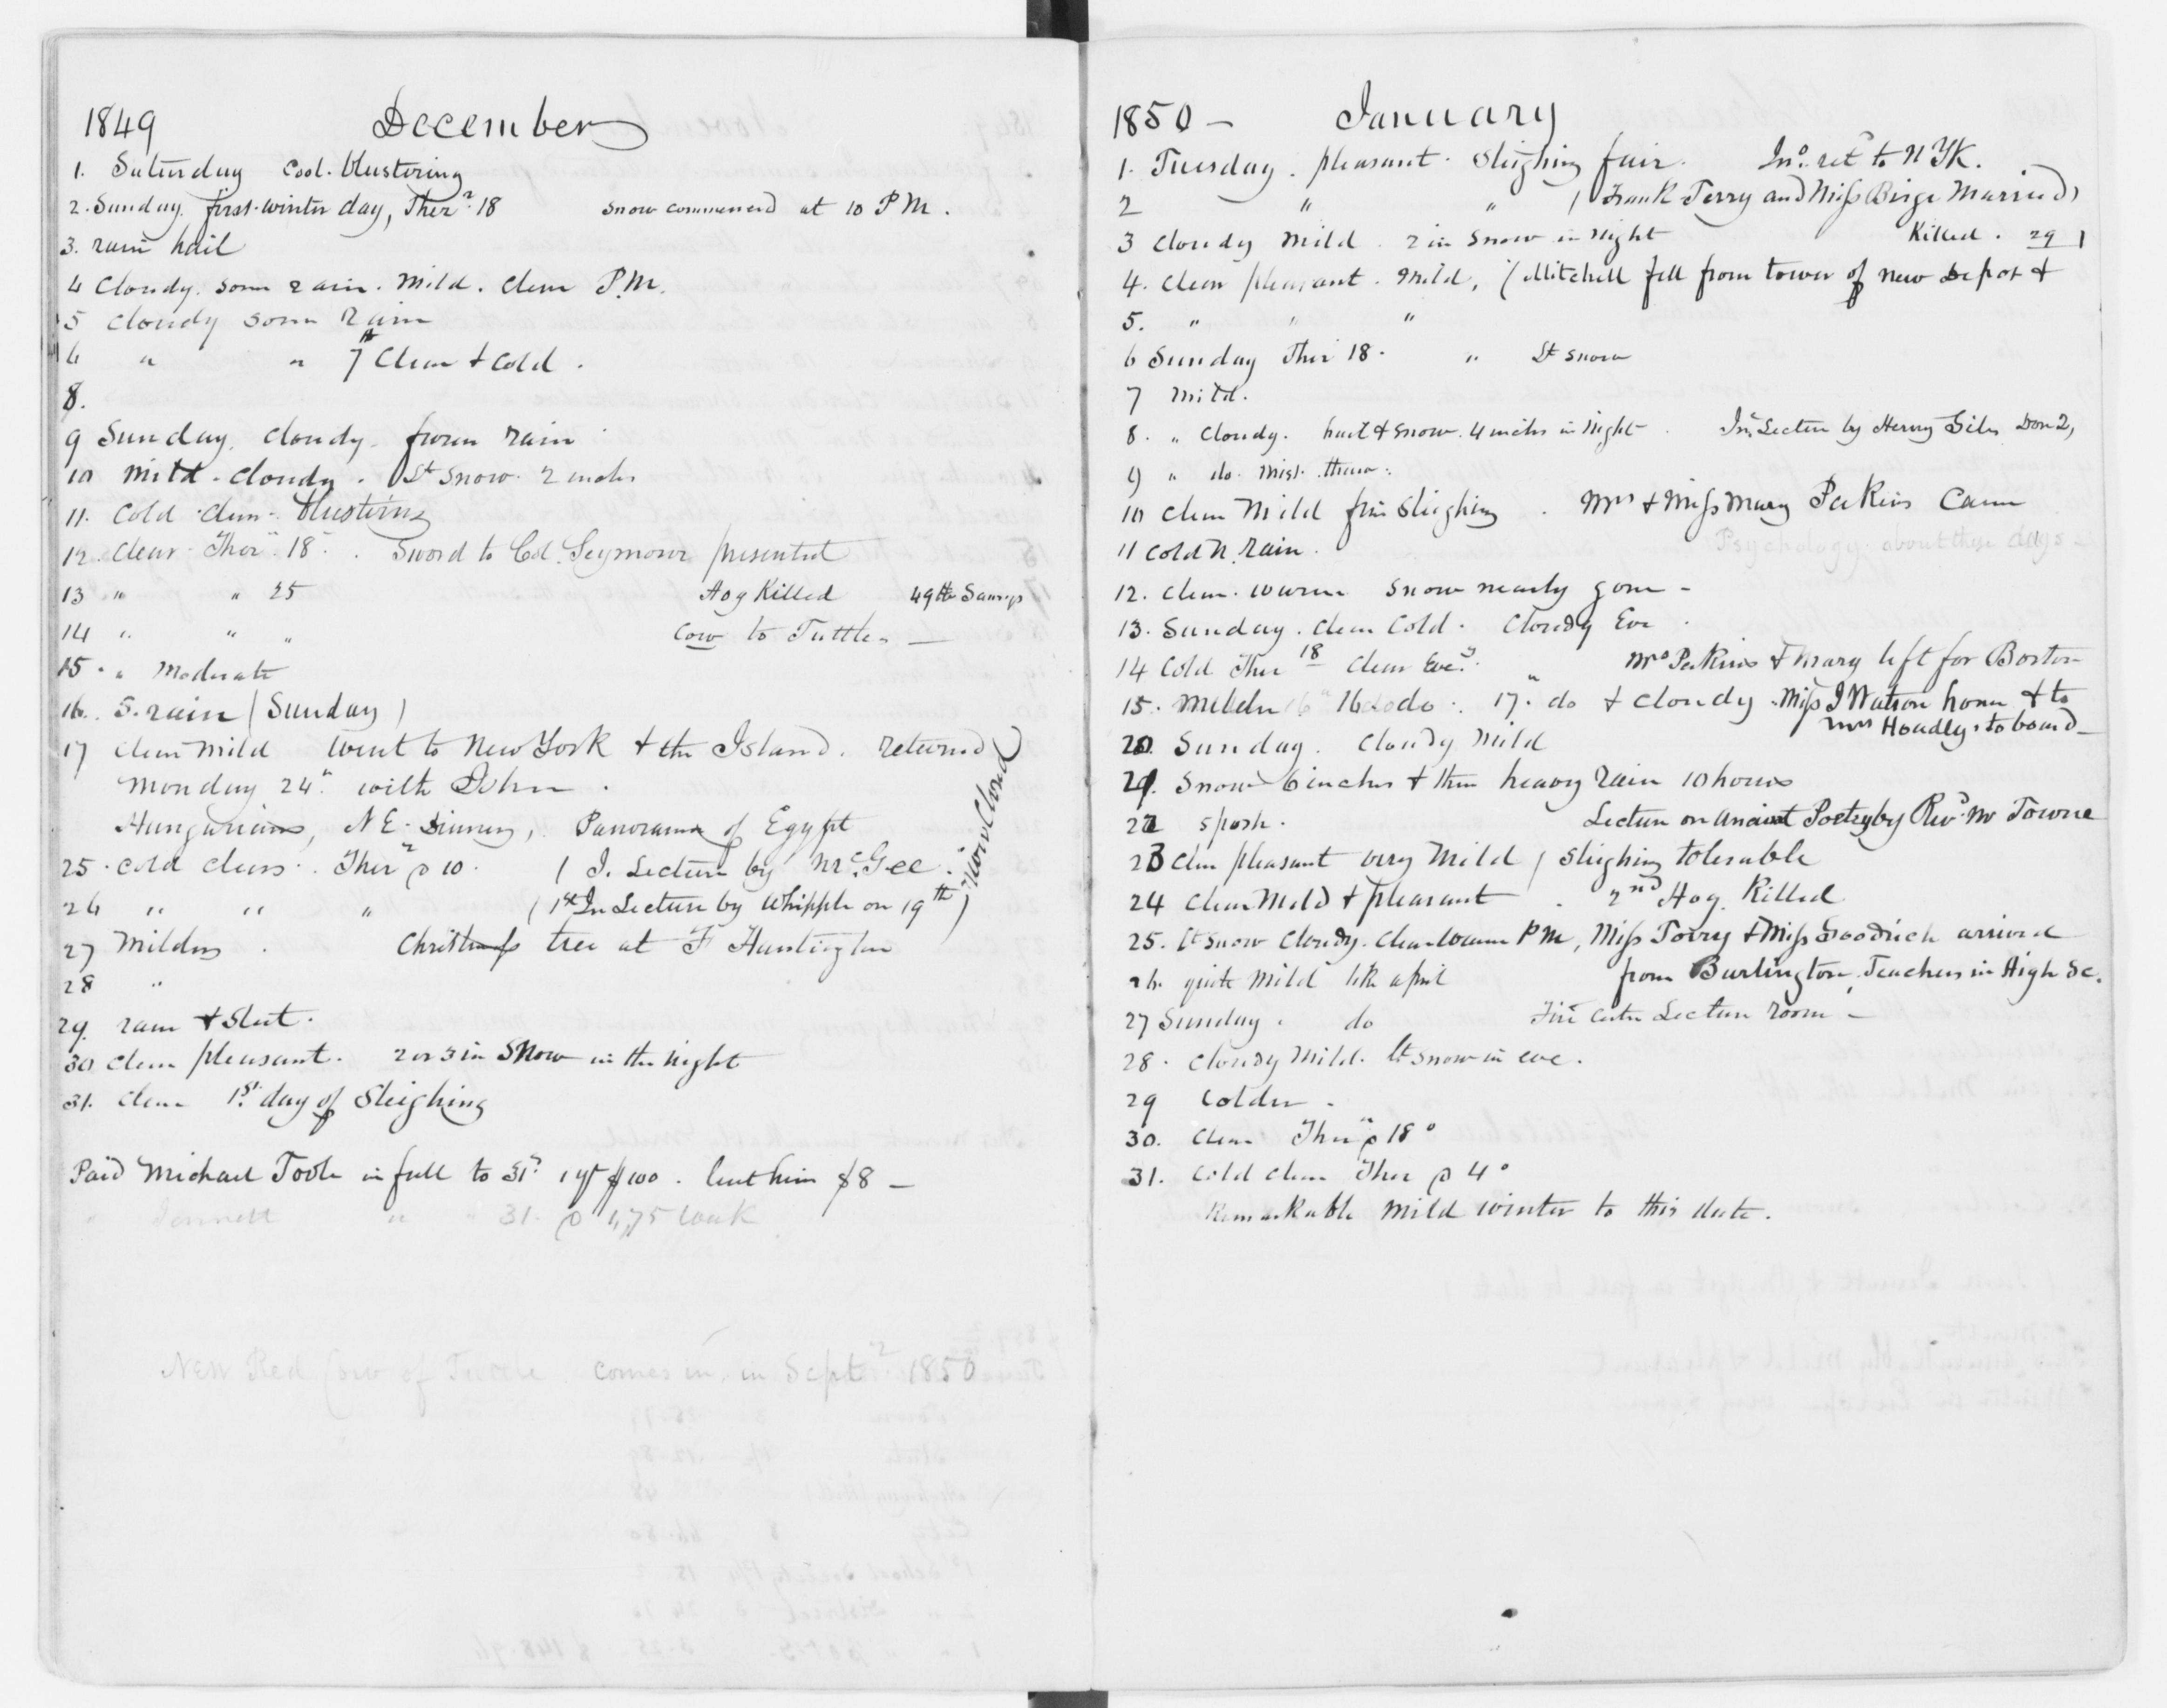 1849 December
1. Saturday Cool. blustering
2. Sunday. first winter day, Ther. 18 Snow commenced at 10 P M.
3. rain hail
4 Cloudy. Some rain. Mild. Clear P.M.
5 Cloudy some rain
6 " " 7th Clear & Cold.
8.
9 Sunday. Cloudy. frozen rain
10 Mild. Cloudy. Lt Snow. 2 inches
11. Cold. Clear. blustering
12. Clear. Ther. 18. Sword to Col. Seymour presented
13 " " 25 Hog Killed
14 " " " Cow to Tuttles —
15. " Moderate
16. S. rain (Sunday)
17 Clear Mild Went to New York & the Island. returned
Monday 24" with John.
Hungarians, N E. Dinner, Panorama of Egypt
25. Cold Clear. Ther @ 10. ( I. Lecture by McGee.
26 " " " (1st In Lecture by Whipple on 19th)
27 Milder. Christmas tree at F Huntington
28 "
29. rain & Sleet.
30 Clear pleasant. 2 or 3 in Snow in the night
31. Clear 1st day of Sleighing
Paid Michael Toole in full to 31st 1 yr $100. lent him $8 —
" " " 31. @ 1,75 Week
New Red Cow of Tuttle comes in, in Sept 1850
1850 — January
1. Tuesday. pleasant. Sleighing fair. Jno. ret to N Yk.
2 " " (Frank Terry and Miss Birge Married)
3 Cloudy Mild. 2 in Snow in night Killed. 29)
4. Clear pleasant. Mild, (Mitchell fell from tower of new Depot &
5. " " "
6 Sunday Ther 18. " Lt Snow
7 Mild.
8. " Cloudy. hail & Snow. 4 inches in night. Ins. Lecture by Henry Giles Don 2,
9 " do. Mist. thaw.
10 Clear Mild fine Sleighing. Mrs & Miss Mary Perkins Came
11 Cold N. rain. Psychology about these days —
12. Clear. warm Snow nearly gone —
13. Sunday. Clear Cold. Cloudy Eve.
14 Cold Ther 18 Clear Eve. " Mrs Perkins & Mary left for Boston
15. Milder 16 do do. 17. do & Cloudy. Miss J Watson home & to
Mrs Hoadleys to board —
20. Sunday. Cloudy Mild
21. Snow 6 inches & then heavy rain 10 hours
22 sposh. Lecture on Ancient Poetry by Revd. Mr Towne
23 Clear pleasant very Mild / Sleighing tolerable
24 Clear Mild & pleasant. 2nd Hog. Killed
25. Lt Snow Cloudy. Clear warm P M, Miss Torry & Miss Goodrich arrived
26. quite Mild like april from Burlington, Teachers in High Sc.
27 Sunday. do Fire Center Lecture room —
28. Cloudy Mild. Lt snow in eve.
29 Colder.
30. Clear Ther @ 18°
31. Cold Clear Ther @ 4°
Remarkable Mild winter to this date.